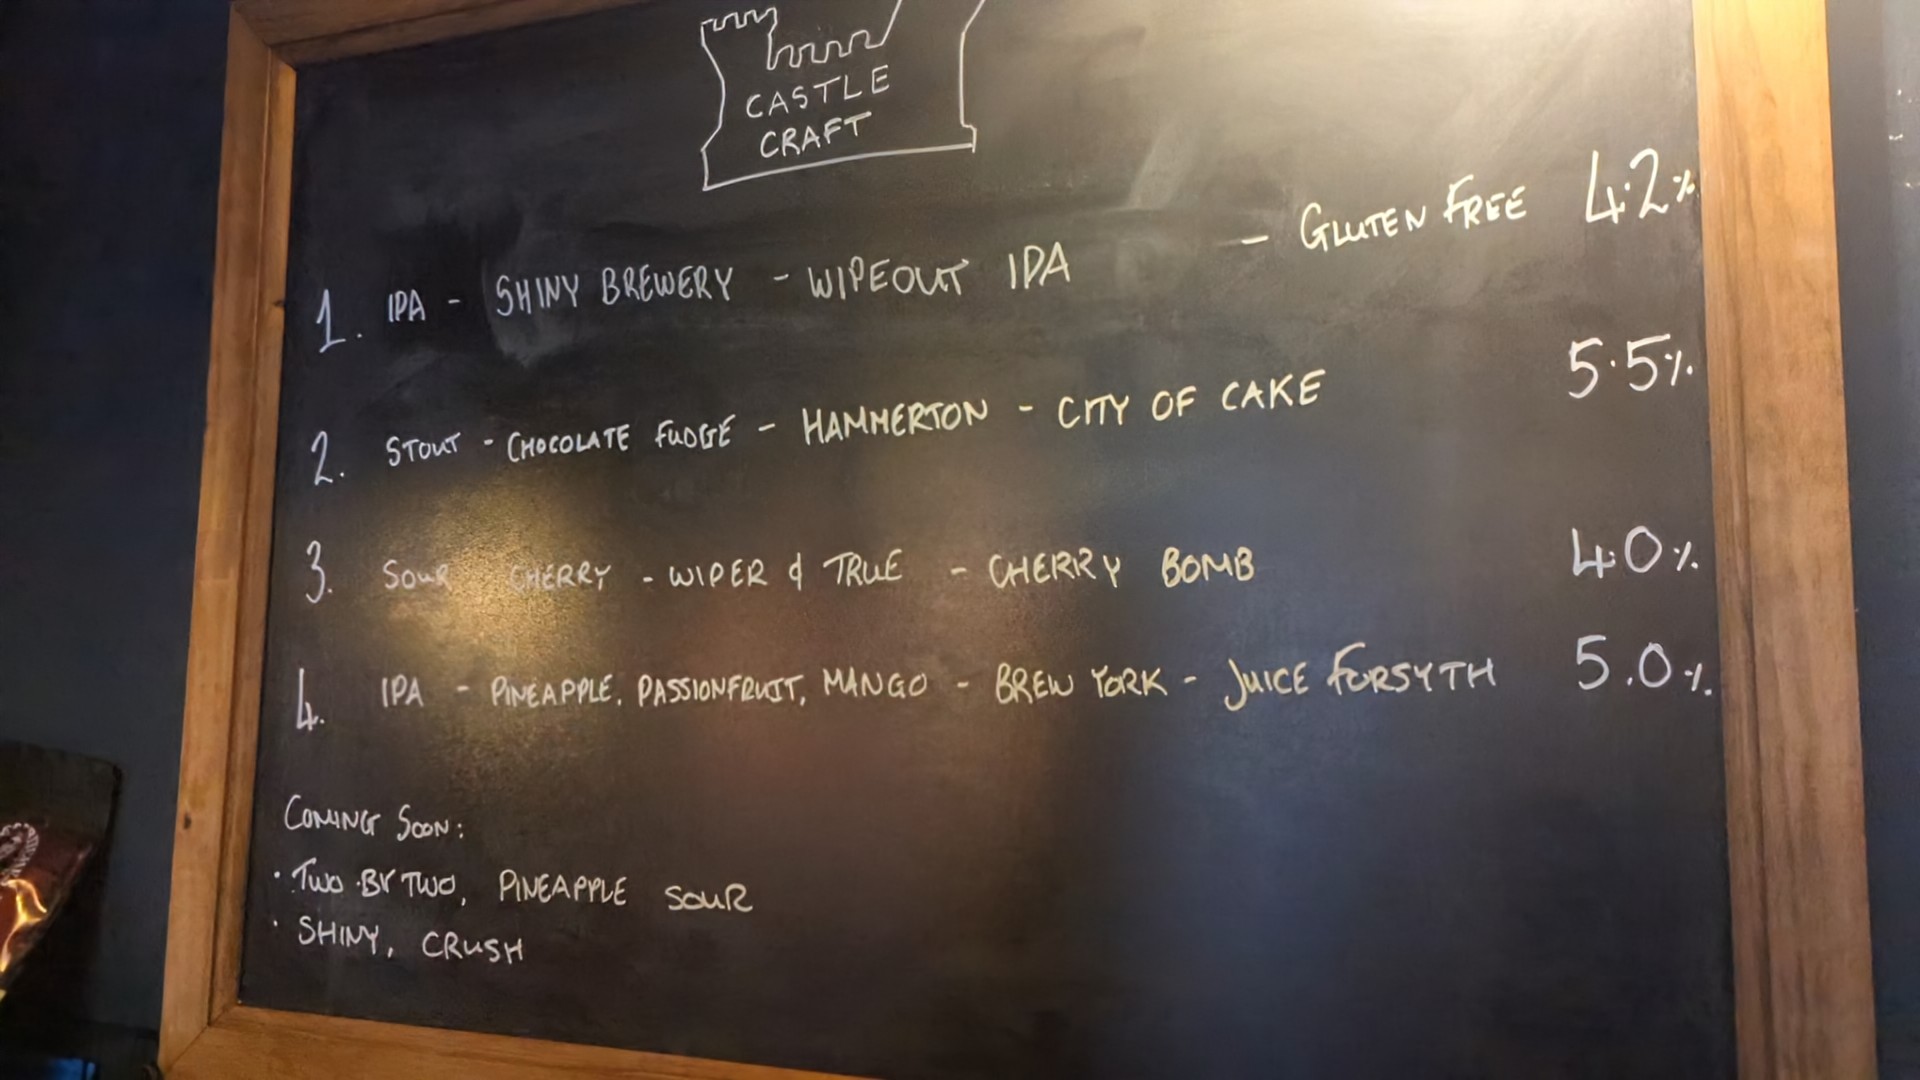 CASTLE
CRAFT
1. IPA - SHINY BREWERY - WIPEOUT IPA - GLUTEN FREE 4.2%
2. STOUT - CHOCOLATE FUDGE - HAMMERTON - CITY OF CAKE 5.5%
3. SOUR CHERRY - WIPER & TRUE - CHERRY BOMB 4.0%
4. IPA - PINEAPPLE, PASSIONFRUIT, MANGO - BREW YORK - JUICE FORSYTH 5.0%
COMING SOON:
· TWO BY TWO, PINEAPPLE SOUR
· SHINY, CRUSH